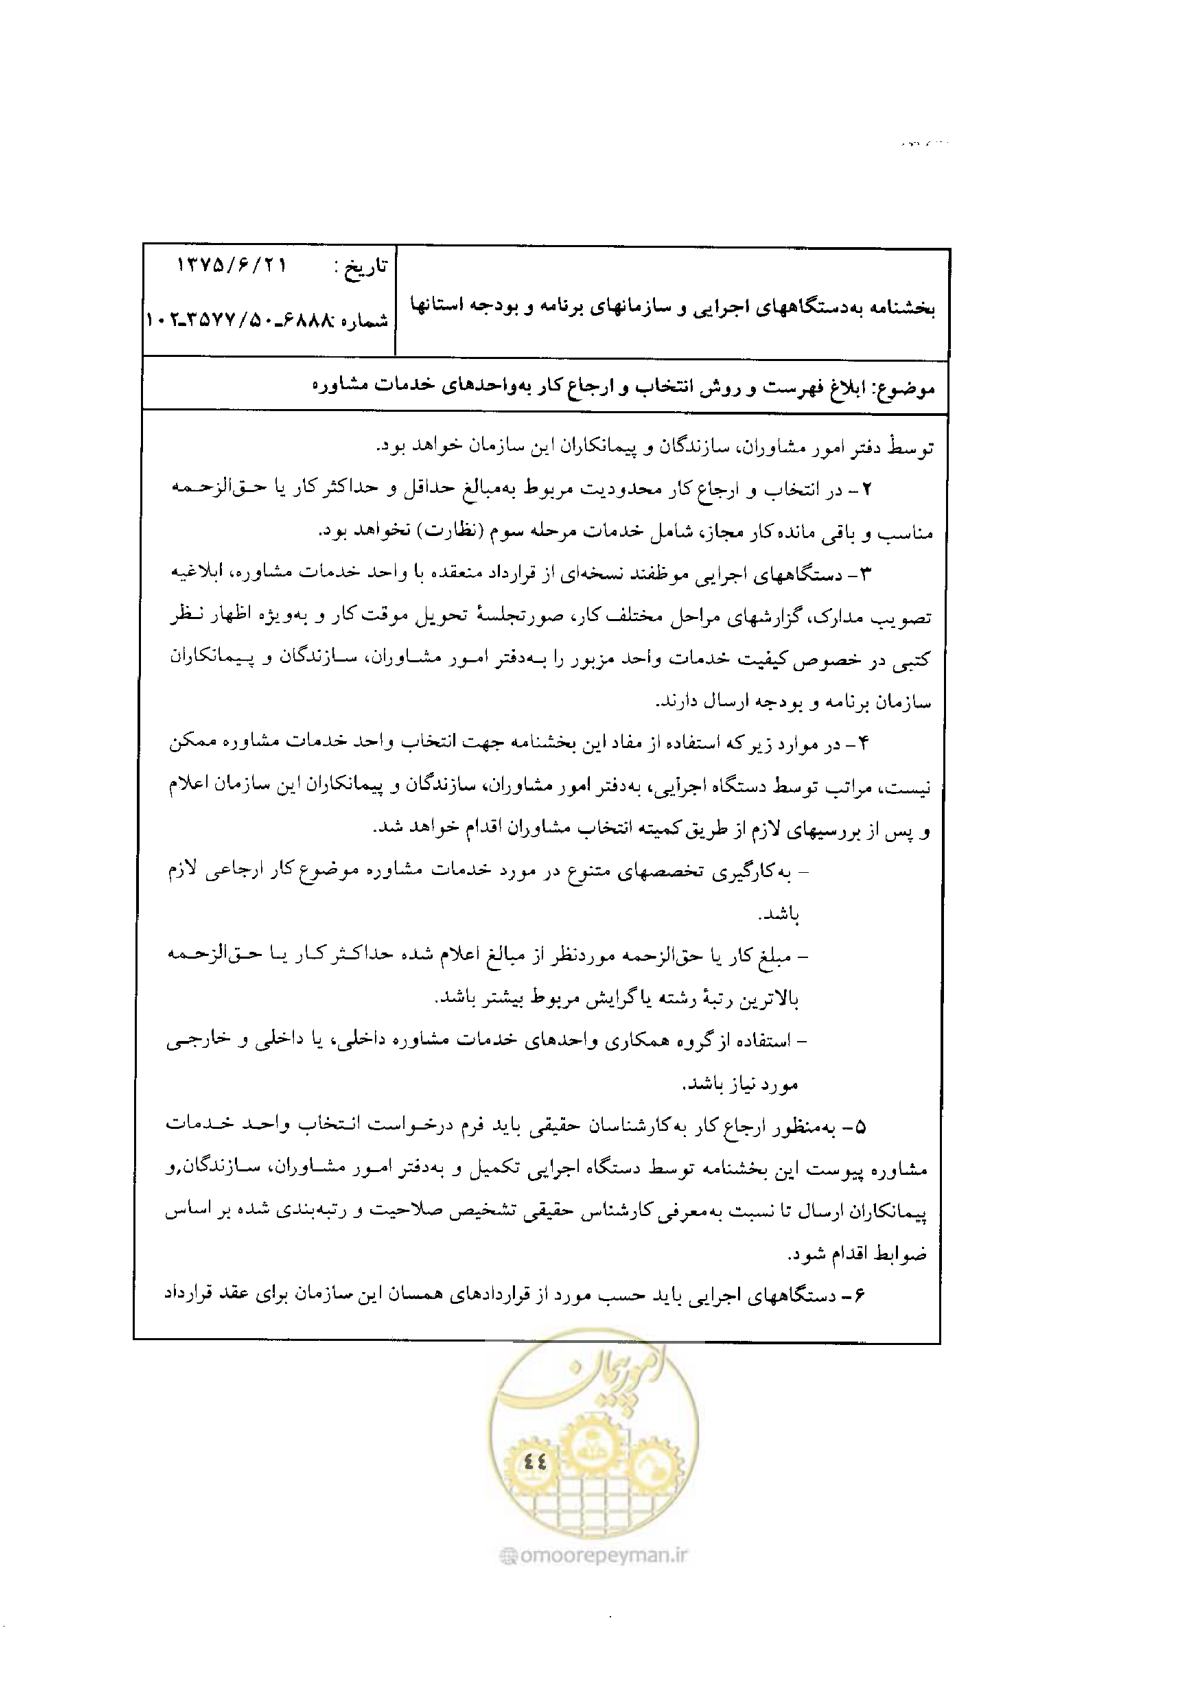 بخشنامه به‌دستگاههای اجرایی و سازمانهای برنامه و بودجه استانها
تاریخ : ۱۳۷۵/۶/۲۱
شماره :۱۰۲ـ۳۵۷۷/۵۰ـ۶۸۸۸
موضوع: ابلاغ فهرست و روش انتخاب و ارجاع کار به‌واحدهای خدمات مشاوره
توسط دفتر امور مشاوران، سازندگان و پیمانکاران این سازمان خواهد بود.
۲- در انتخاب و ارجاع کار محدودیت مربوط به‌مبالغ حداقل و حداکثر کار یا حق‌الزحمه
مناسب و باقی مانده کار مجاز، شامل خدمات مرحله سوم (نظارت) نخواهد بود.
۳- دستگاههای اجرایی موظفند نسخه‌ای از قرارداد منعقده با واحد خدمات مشاوره، ابلاغیه
تصویب مدارک، گزارشهای مراحل مختلف کار، صورتجلسهٔ تحویل موقت کار و به‌ویژه اظهار نظر
کتبی در خصوص کیفیت خدمات واحد مزبور را به‌دفتر امور مشاوران، سازندگان و پیمانکاران
سازمان برنامه و بودجه ارسال دارند.
۴- در موارد زیر که استفاده از مفاد این بخشنامه جهت انتخاب واحد خدمات مشاوره ممکن
نیست، مراتب توسط دستگاه اجرایی، به‌دفتر امور مشاوران، سازندگان و پیمانکاران این سازمان اعلام
و پس از بررسیهای لازم از طریق کمیته انتخاب مشاوران اقدام خواهد شد.
- به‌کارگیری تخصصهای متنوع در مورد خدمات مشاوره موضوع کار ارجاعی لازم
باشد.
- مبلغ کار یا حق‌الزحمه موردنظر از مبالغ اعلام شده حداکثر کار یا حق‌الزحمه
بالاترین رتبهٔ رشته یا گرایش مربوط بیشتر باشد.
- استفاده از گروه همکاری واحدهای خدمات مشاوره داخلی، یا داخلی و خارجی
مورد نیاز باشد.
۵- به‌منظور ارجاع کار به‌کارشناسان حقیقی باید فرم درخواست انتخاب واحد خدمات
مشاوره پیوست این بخشنامه توسط دستگاه اجرایی تکمیل و به‌دفتر امور مشاوران، سازندگان و
پیمانکاران ارسال تا نسبت به‌معرفی کارشناس حقیقی تشخیص صلاحیت و رتبه‌بندی شده بر اساس
ضوابط اقدام شود.
۶- دستگاههای اجرایی باید حسب مورد از قراردادهای همسان این سازمان برای عقد قرارداد
امور پیمان
٤٤
@omoorepeyman.ir